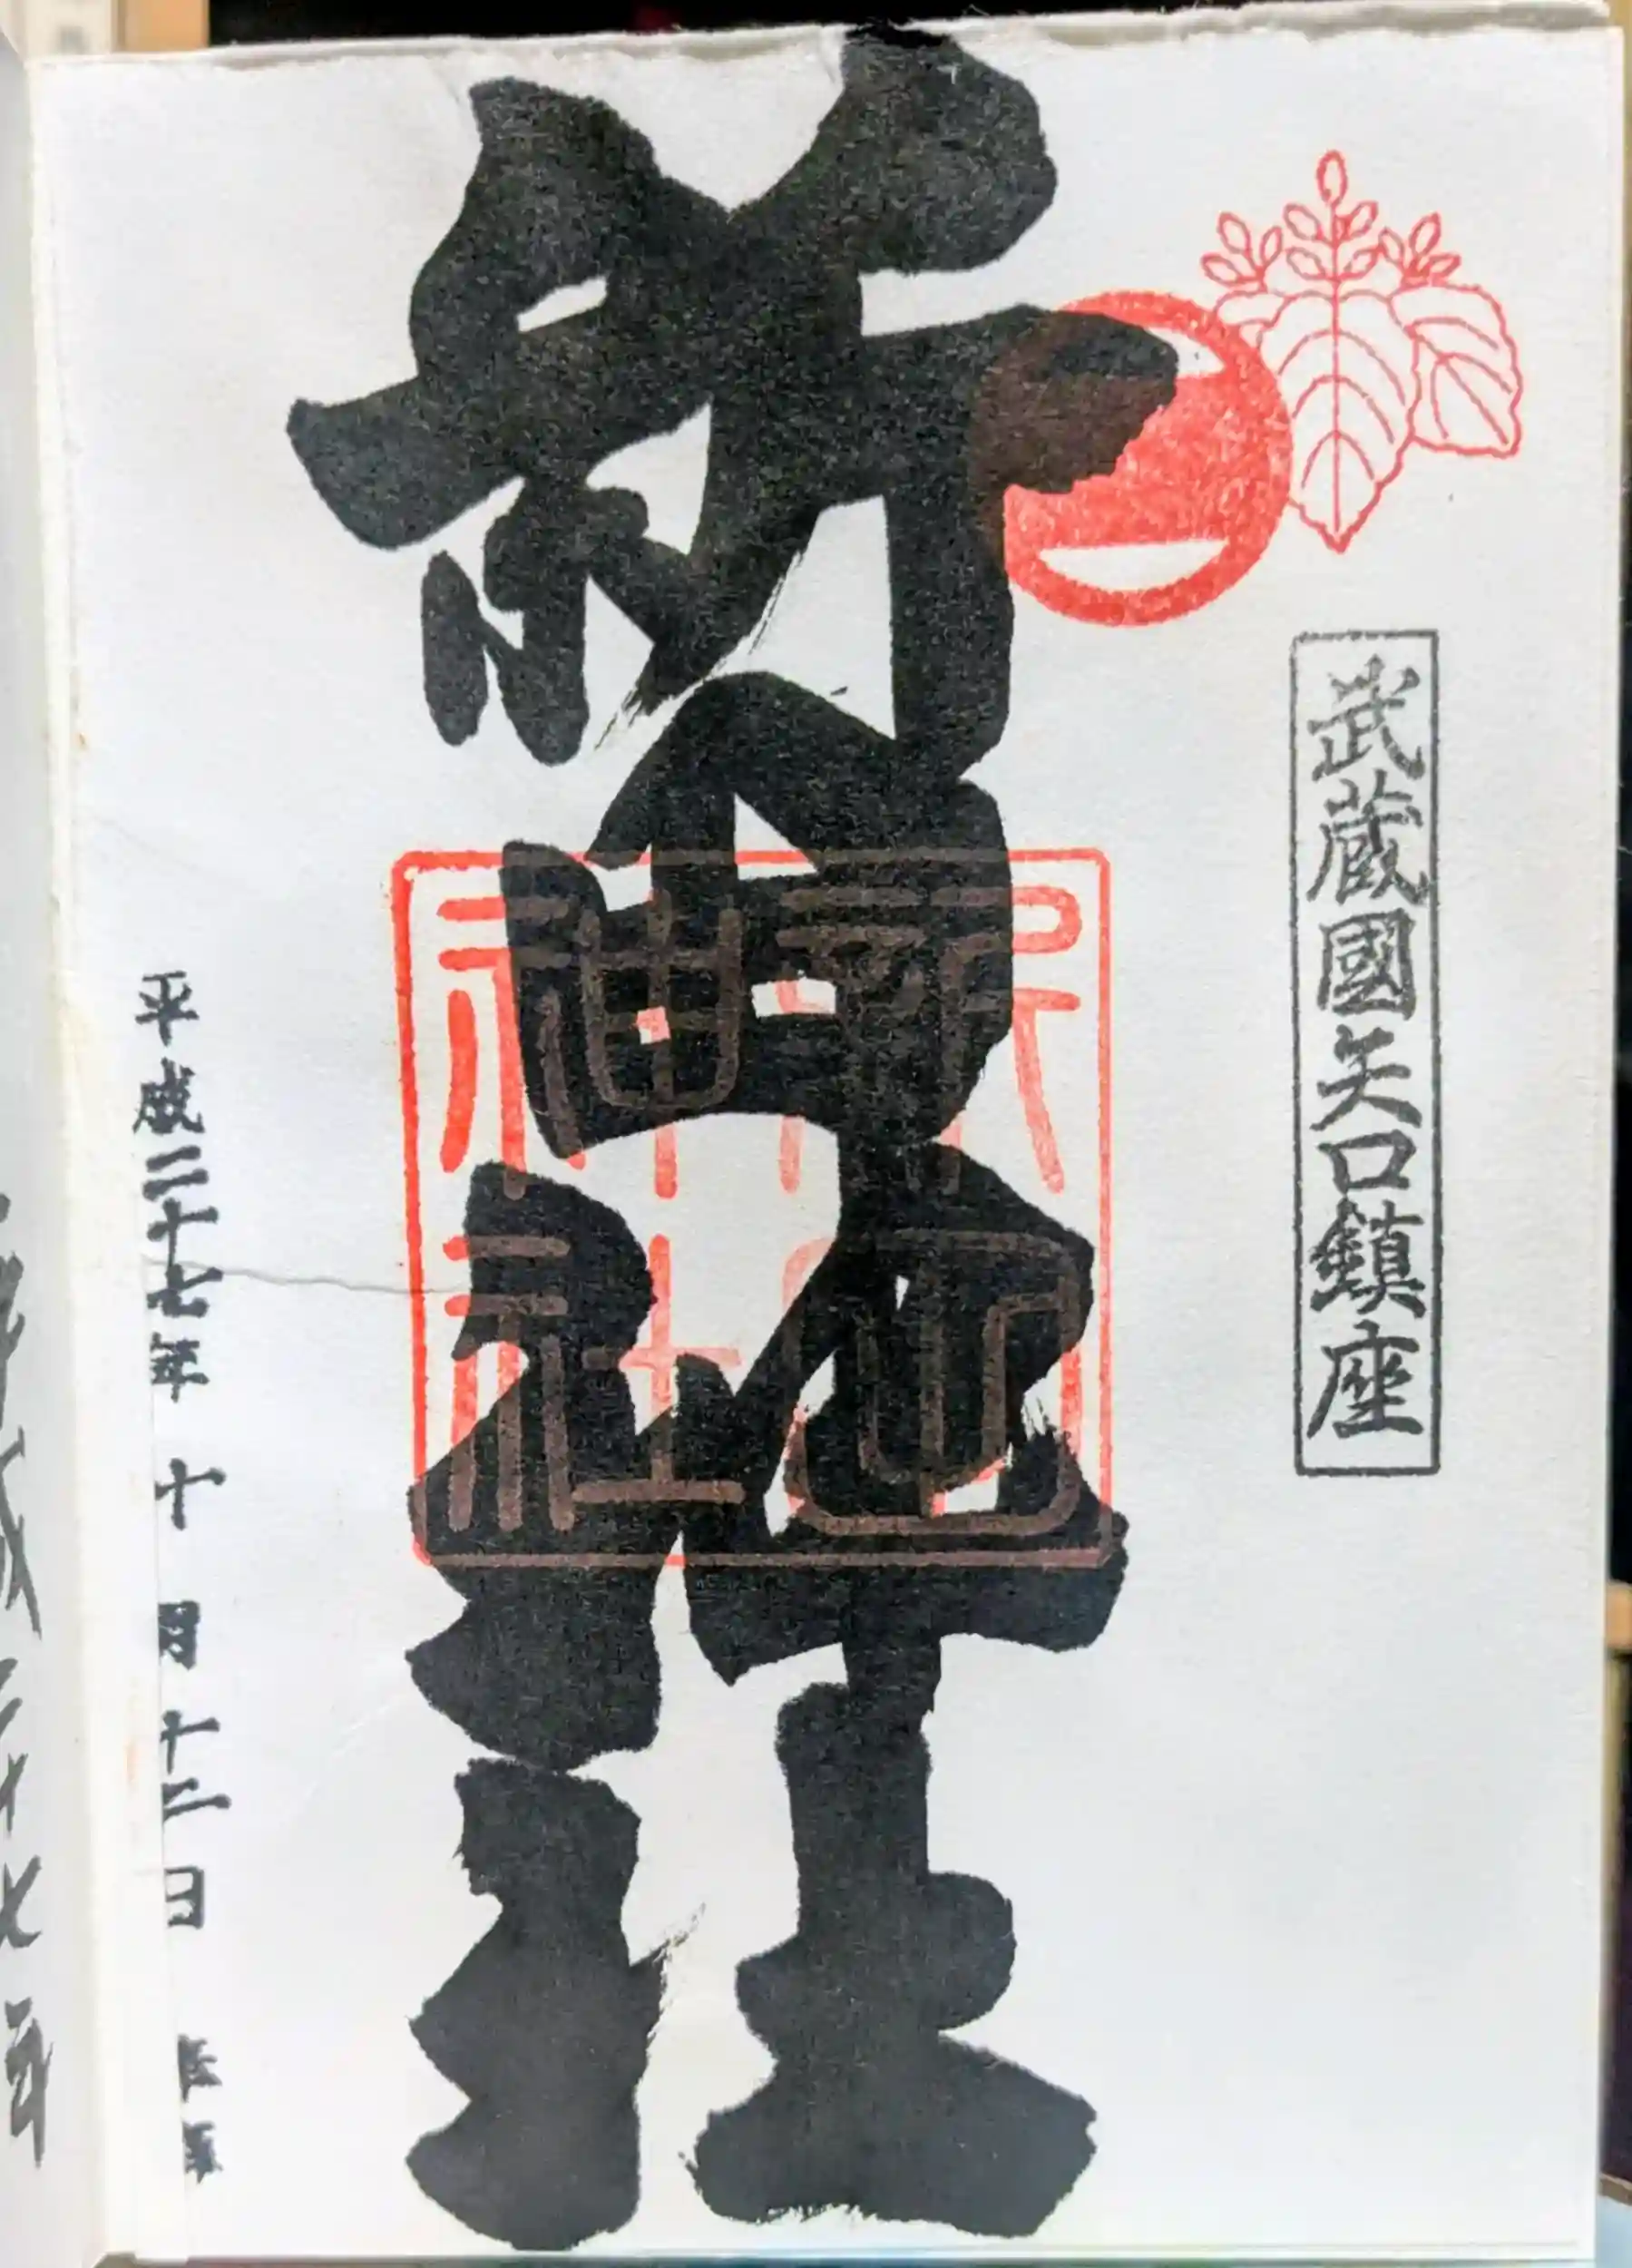 武蔵國矢口鎮座
新田神社
新田神社
平成二十七年 十 月 十二日